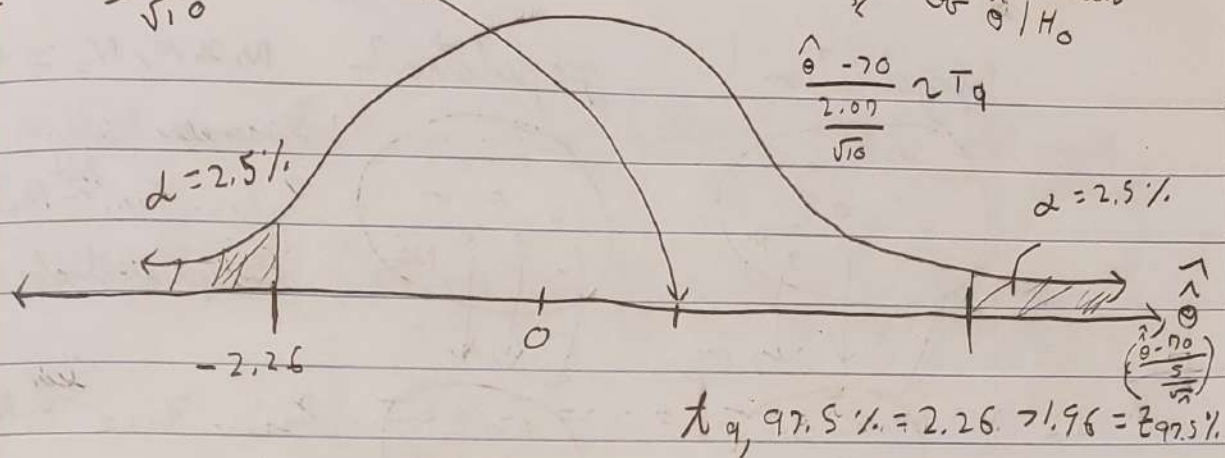 √10
θ̂ | H₀
(θ̂ - 70) / (2.07/√10) ~ T₉
α = 2.5%
α = 2.5%
-2.26
0
θ̂̂
((θ̂ - 70) / (s/√n))
t₉, 97.5% = 2.26 > 1.96 = z97.5%